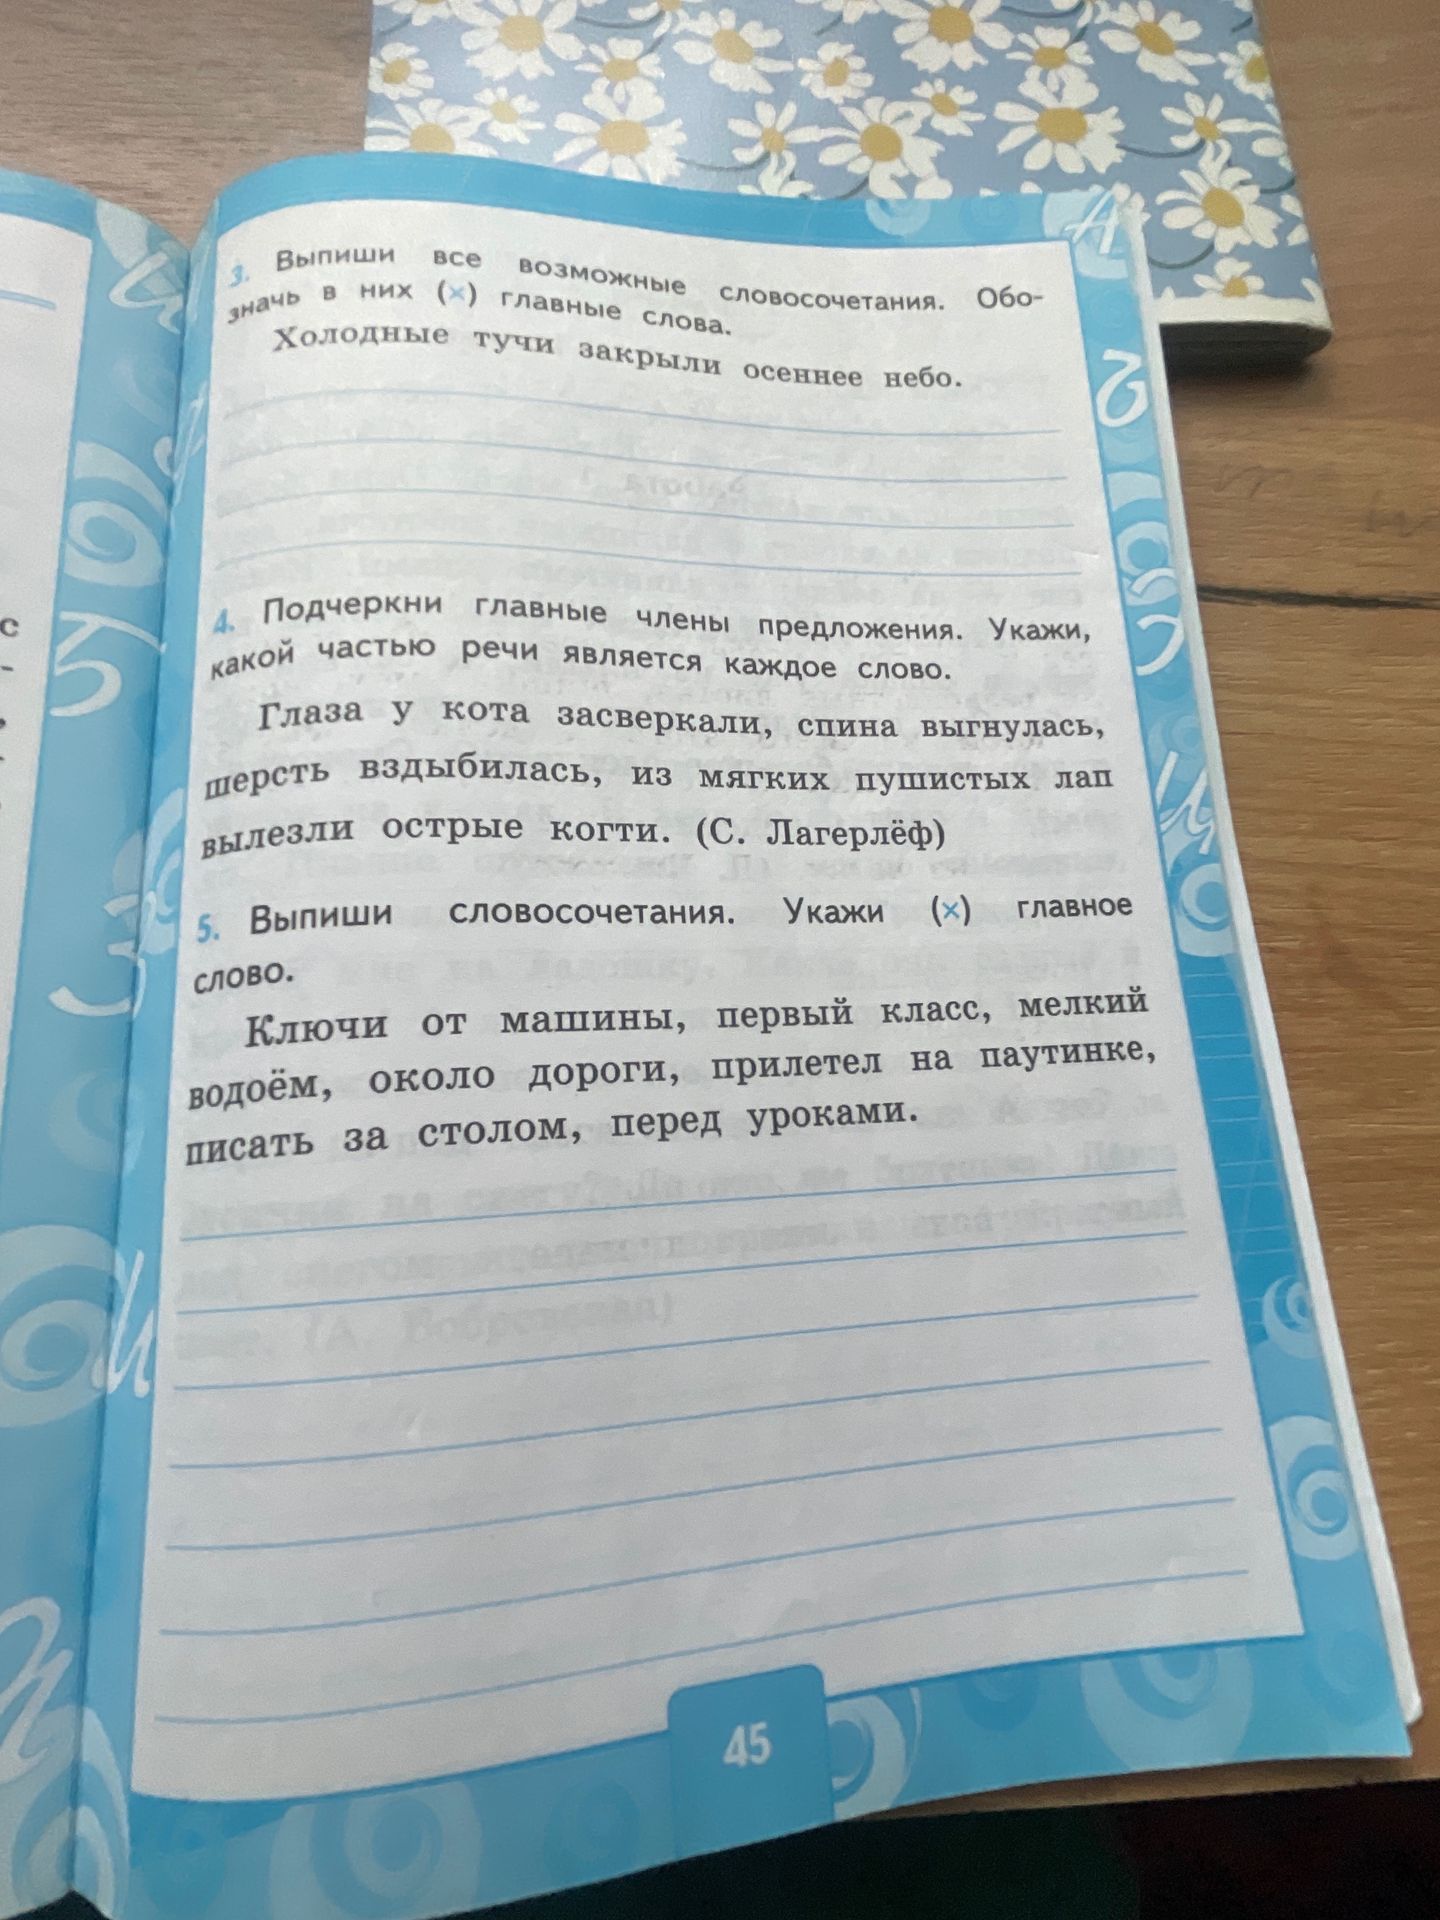 3. Выпиши все возможные словосочетания. Обо-
значь в них (×) главные слова.
Холодные тучи закрыли осеннее небо.
4. Подчеркни главные члены предложения. Укажи,
какой частью речи является каждое слово.
Глаза у кота засверкали, спина выгнулась,
шерсть вздыбилась, из мягких пушистых лап
вылезли острые когти. (С. Лагерлёф)
5. Выпиши словосочетания. Укажи (×) главное
слово.
Ключи от машины, первый класс, мелкий
водоём, около дороги, прилетел на паутинке,
писать за столом, перед уроками.
45